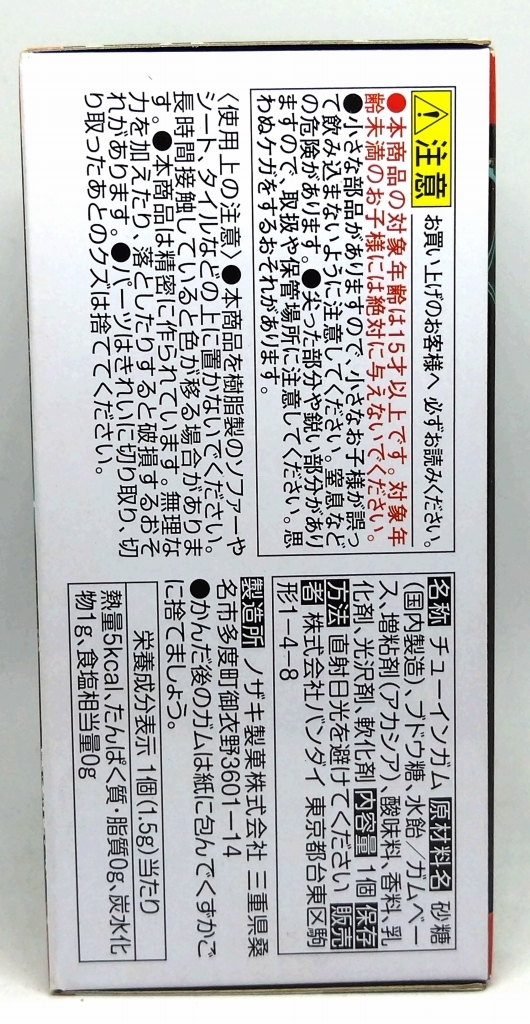 ⚠注意 お買い上げのお客様へ 必ずお読みください。
●本商品の対象年齢は15才以上です。対象年
齢未満のお子様には絶対に与えないでください。
●小さな部品がありますので、小さなお子様が誤っ
て飲み込まないように注意してください。窒息など
の危険があります。●尖った部分や鋭い部分があり
ますので、取扱や保管場所に注意してください。思
わぬケガをするおそれがあります。
〈使用上の注意〉●本商品を樹脂製のソファーや
シート、タイルなどの上に置かないでください。
長時間接触していると色が移る場合がありま
す。●本商品は精密に作られています。無理な
力を加えたり、落としたりすると破損するおそ
れがあります。●パーツはきれいに切り取り、切
り取ったあとのクズは捨ててください。
名称 チューインガム 原材料名 砂糖
(国内製造)、ブドウ糖、水飴／ガムベー
ス、増粘剤(アカシア)、酸味料、香料、乳
化剤、光沢剤、軟化剤 内容量 1個 保存
方法 直射日光を避けてください 販売
者 株式会社バンダイ 東京都台東区駒
形1-4-8
製造所 ノザキ製菓株式会社 三重県桑
名市多度町御衣野3601-14
●かんだ後のガムは紙に包んでくずかご
に捨てましょう。
栄養成分表示 1個(1.5g)当たり
熱量5kcal、たんぱく質・脂質0g、炭水化
物1g、食塩相当量0g